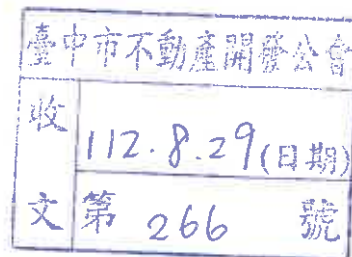 臺中市不動產開發公會
收文
112.8.29(日期)
第 266 號